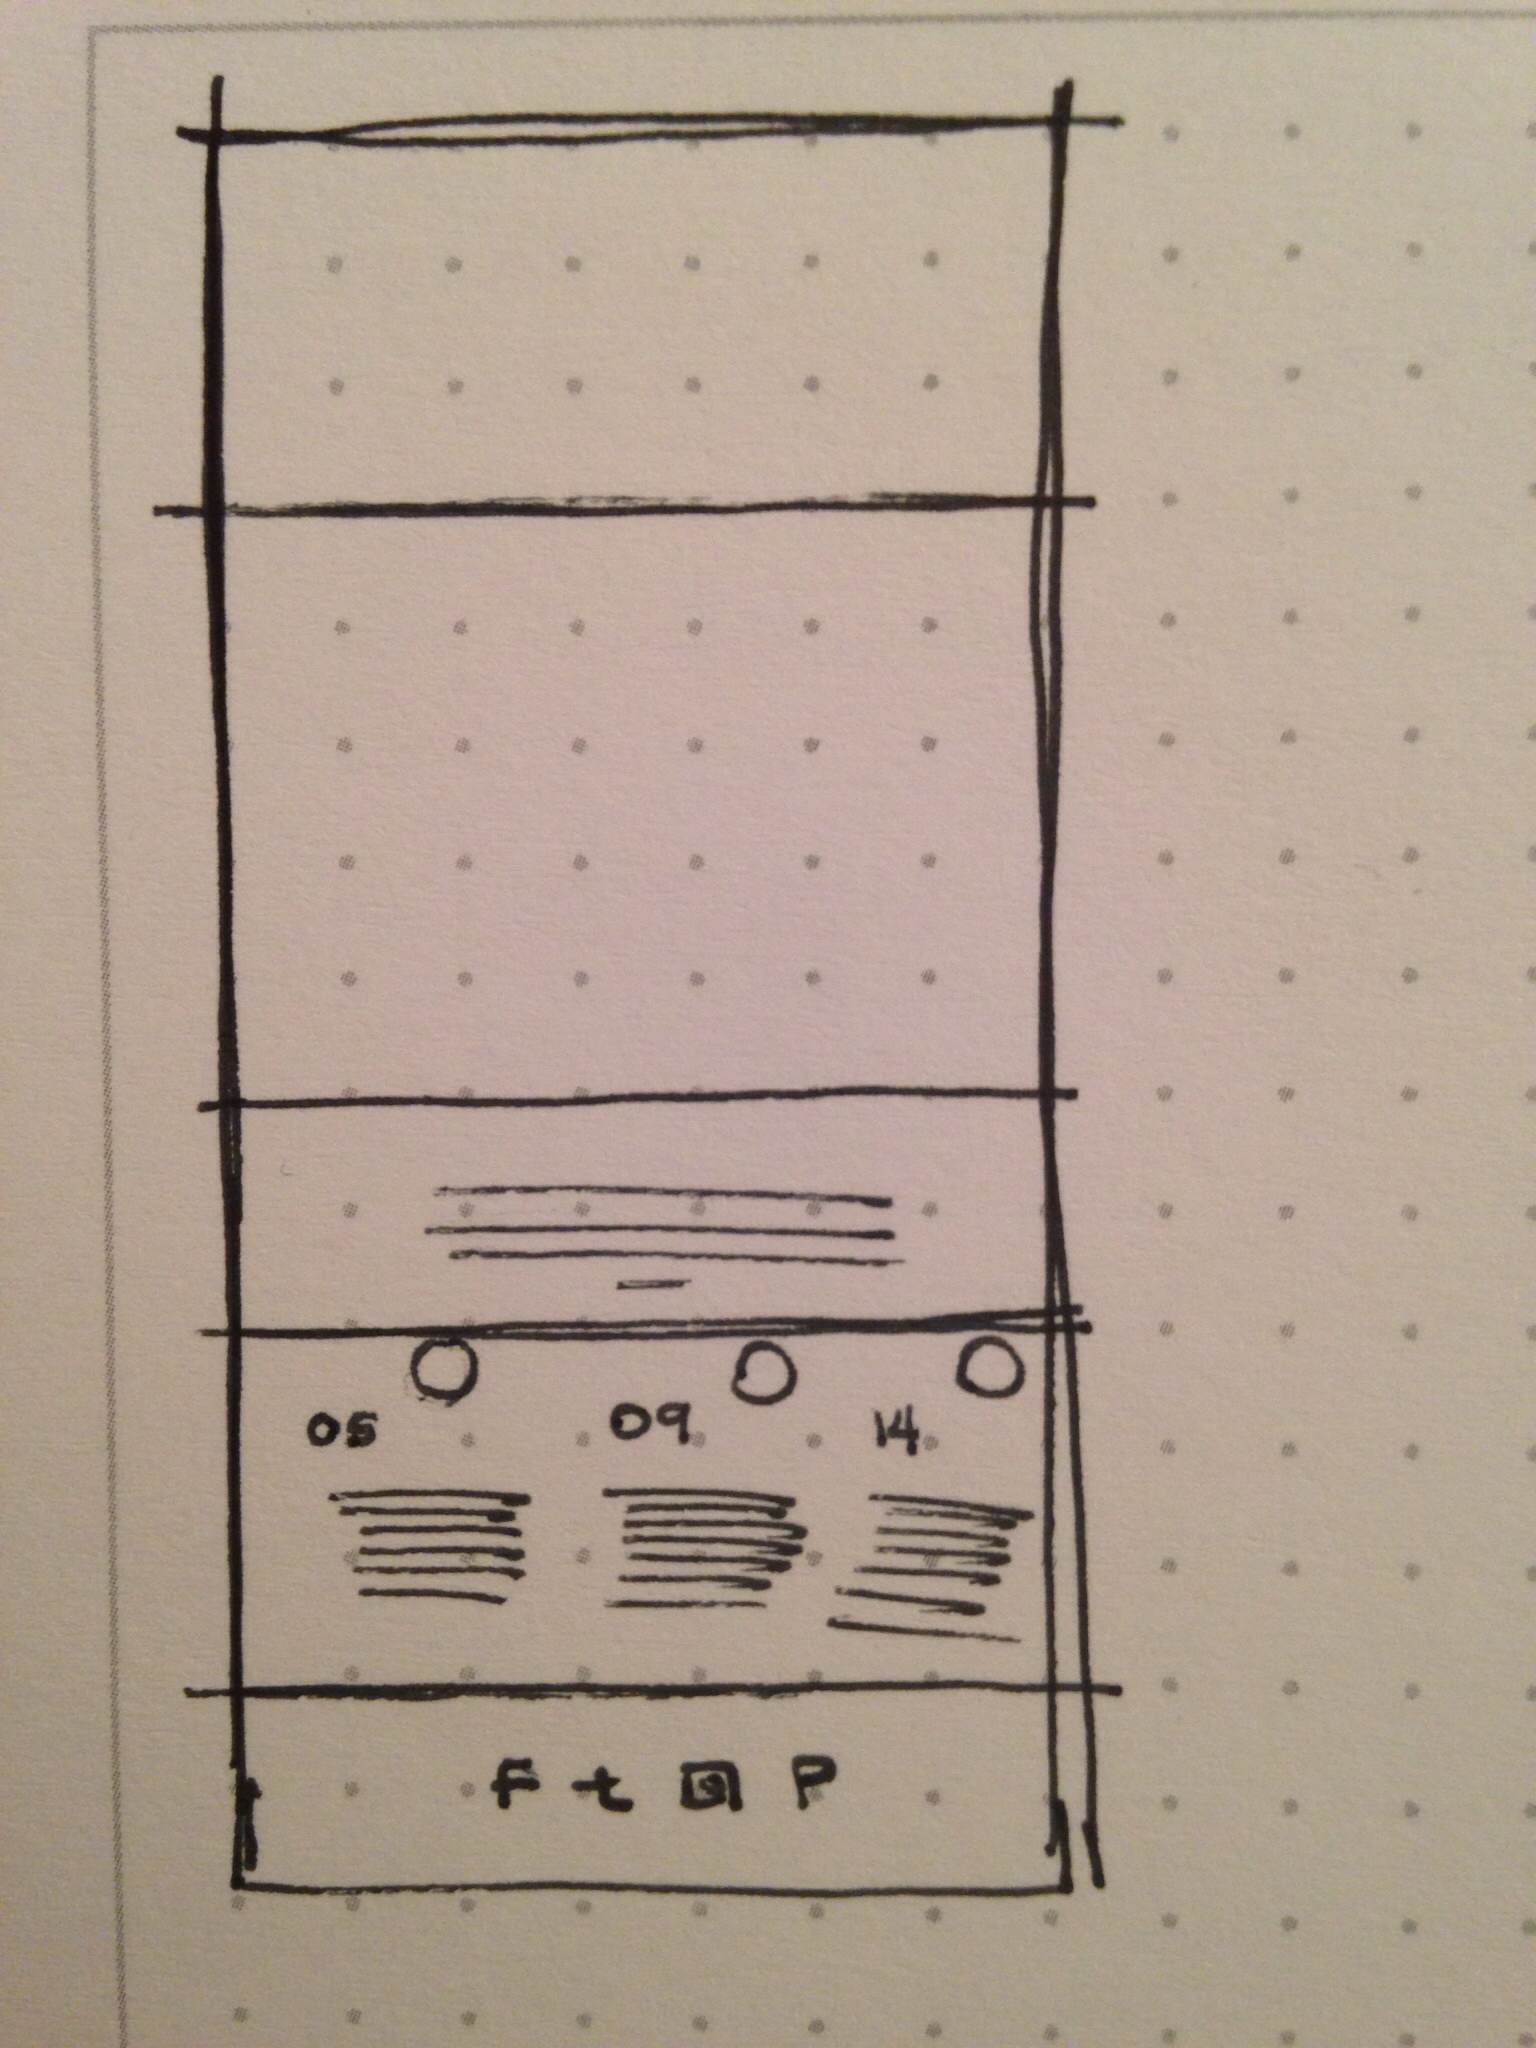 05 09 14
F t P